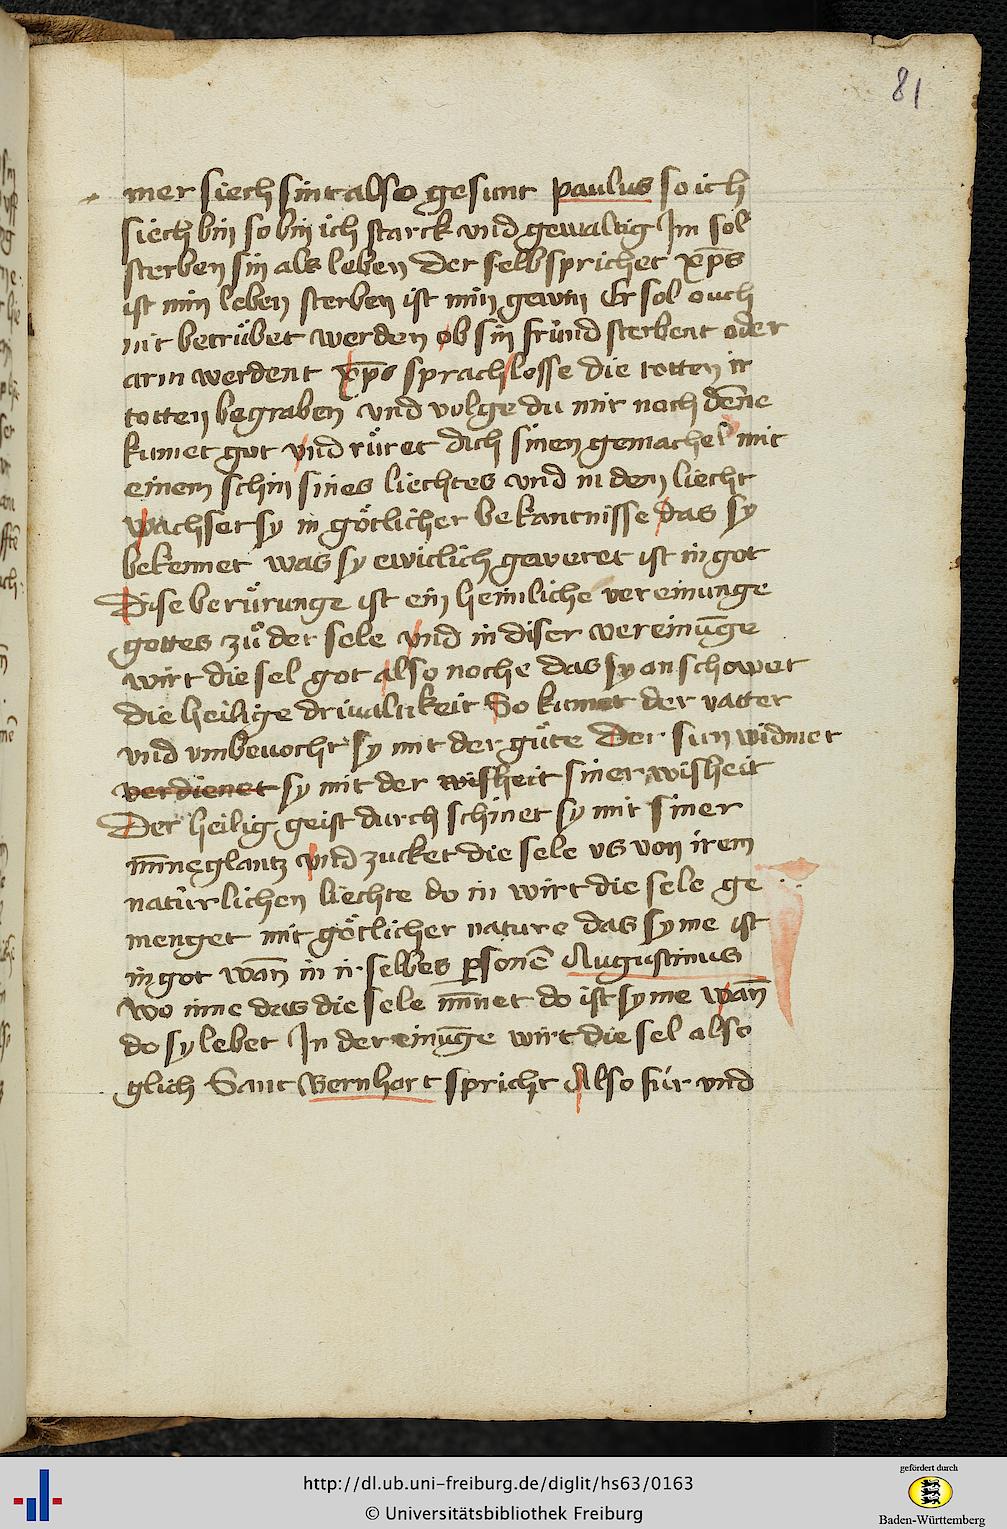 81
mer siech sint also gesunt paulus so ich
siech bin so bin ich starck vnd gewaltig Im sol
sterben sin als leben Der selb sprichet xp̄s
ist min leben sterben ist min gewin Er sol ouch
nit betrübet werden ob sin fründ sterbent oder
arm werdent xp̄s sprach losse die totten ir
totten begraben vnd volge du mir noch den̄e
kumet got vnd rüret dich sinen gemachel mit
einem schin sines liechtes vnd in dem liecht
wachset sy in götlicher bekantnisse das sy
bekennet was sy ewiclich geweret ist in got
Dise berürunge ist ein heimliche vereinunge
gottes zů der sele vnd in diser vereinūge
wirt die sel got also noche das sy anschowet
die heilige driualtikeit So kumet der vatter
vnd vmbeuocht sy mit der güte Der sun widmet
verdienet sy mit der wisheit siner wisheit
Der heilig geist durch schinet sy mit siner
min̄e glantz vnd zucket die sele vs von irem
natürlichen liechte do in wirt die sele ge
menget mit götlicher nature das sy me ist
in got wan̄ in ir selbes ꝑsonē Augustinus
wo inne das die sele min̄et do ist sy me wan̄
do sy lebet In der einūge wirt die sel also
glich Sant Bernhart spricht Also für vnd
http://dl.ub.uni-freiburg.de/diglit/hs63/0163
© Universitätsbibliothek Freiburg
gefördert durch
Baden-Württemberg